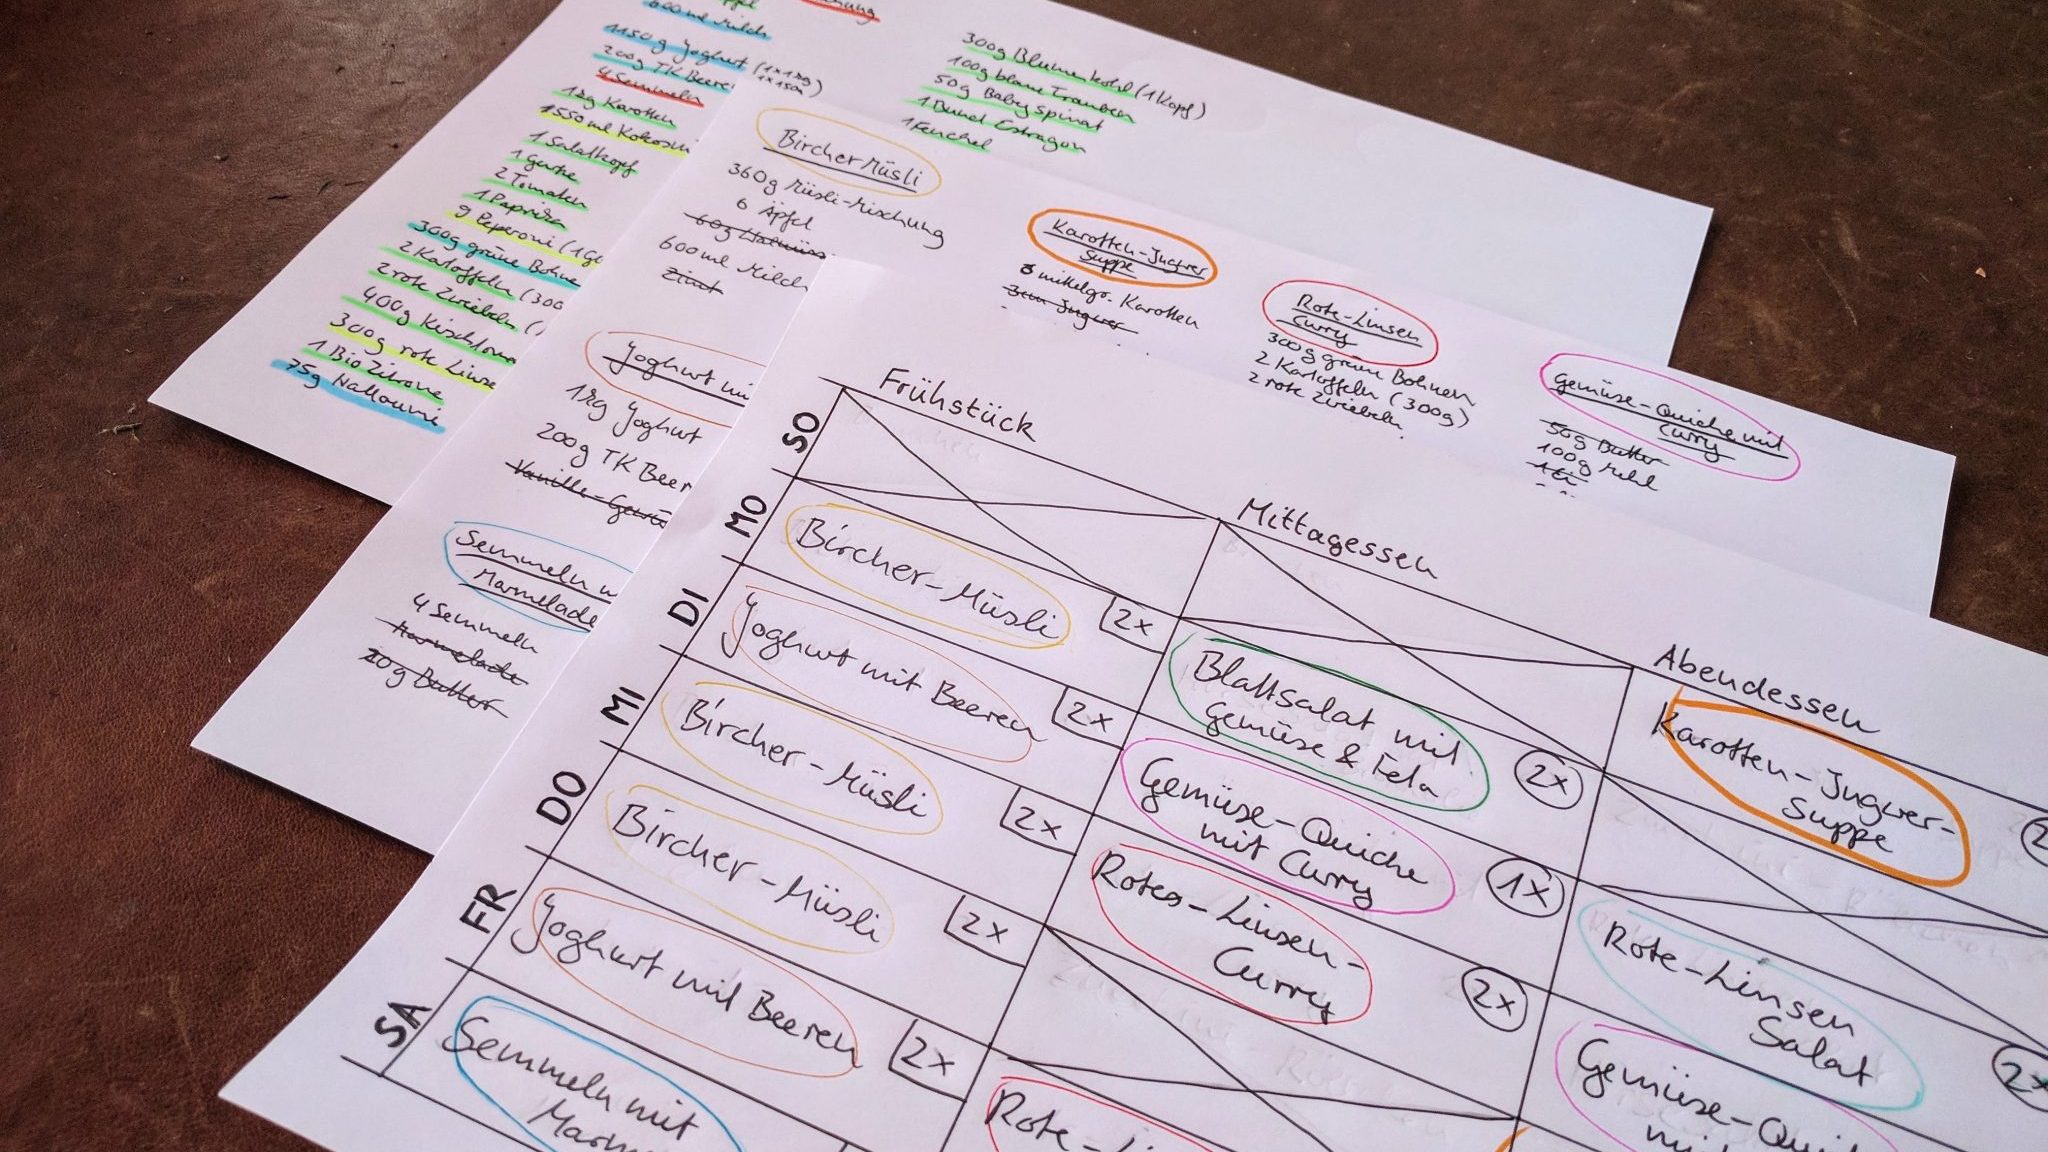 600ml Milch
1150g Joghurt (1x1kg)
1x150g
200g TK Beere
4 Semmeln
1kg Karotten
1550ml Kokosm
1 Salatkopf
1 Gurke
2 Tomaten
1 Paprika
9 Peperoni (1 Gl
300g grüne Bohne
2 Kartoffeln (300
2 rote Zwiebeln (
400g Kirschtoma
300g rote Linse
1 Bio Zitrone
75g Halloumi
300g Blumenkohl (1 Kopf)
100g blaue Trauben
50g Babyspinat
1 Bund Estragon
1 Fenchel
Bircher Müsli
360g Müsli-Mischung
6 Äpfel
60g Walnüss
600ml Milch
Zimt
Joghurt mi
1kg Joghurt
200g TK Beer
Vanille-Gewü
Semmeln m
Marmelade
4 Semmeln
Marmelade
20g Butter
Karotten-Ingwer
Suppe
6 mittelgr. Karotten
3cm Ingwer
Rote-Linsen
Curry
300g grüne Bohnen
2 Kartoffeln (300g)
2 rote Zwiebeln
Gemüse-Quiche mit
Curry
50g Butter
100g Mehl
1 Ei
Frühstück
Mittagessen
Abendessen
SO
Karotten-Ingwer-
Suppe
MO
Bircher-Müsli
2x
Blattsalat mit
Gemüse & Feta
2x
DI
Joghurt mit Beeren
2x
Gemüse-Quiche
mit Curry
1x
Rote-Linsen
Salat
2x
MI
Bircher-Müsli
2x
Rotes-Linsen-
Curry
2x
Gemüse-Qui
mi
DO
Bircher-Müsli
2x
FR
Joghurt mit Beeren
2x
Rote-Li
SA
Semmeln mit
Marm